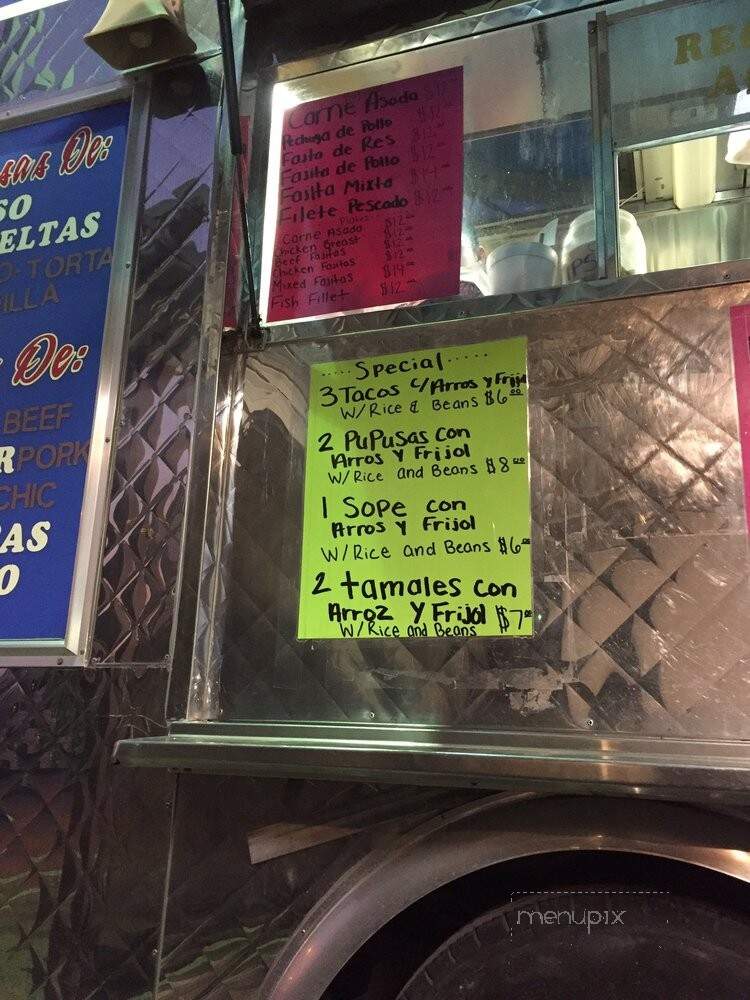 De:
ELTAS
TORTA
ILLA
De:
BEEF
PORK
CHIC
AS
O
Carne Asada $12
Pechuga de Pollo $12
Fajita de Res $12
Fasita de Pollo $12
Fasita Mixta $14
Filete Pescado $12
Plates
Carne Asada $12
Chicken Breast $12
Beef Fasitas $12
Chicken Fasitas $12
Mixed Fasitas $14
Fish Fillet $12
.....Special.....
3 Tacos c/Arros y Frijol
W/Rice & Beans $6.00
2 PuPusas con
Arros y Frijol
W/Rice and Beans $8.00
1 Sope con
Arros y Frijol
W/Rice and Beans $6.00
2 tamales con
Arroz Y Frijol
W/Rice and Beans $7.00
menupix